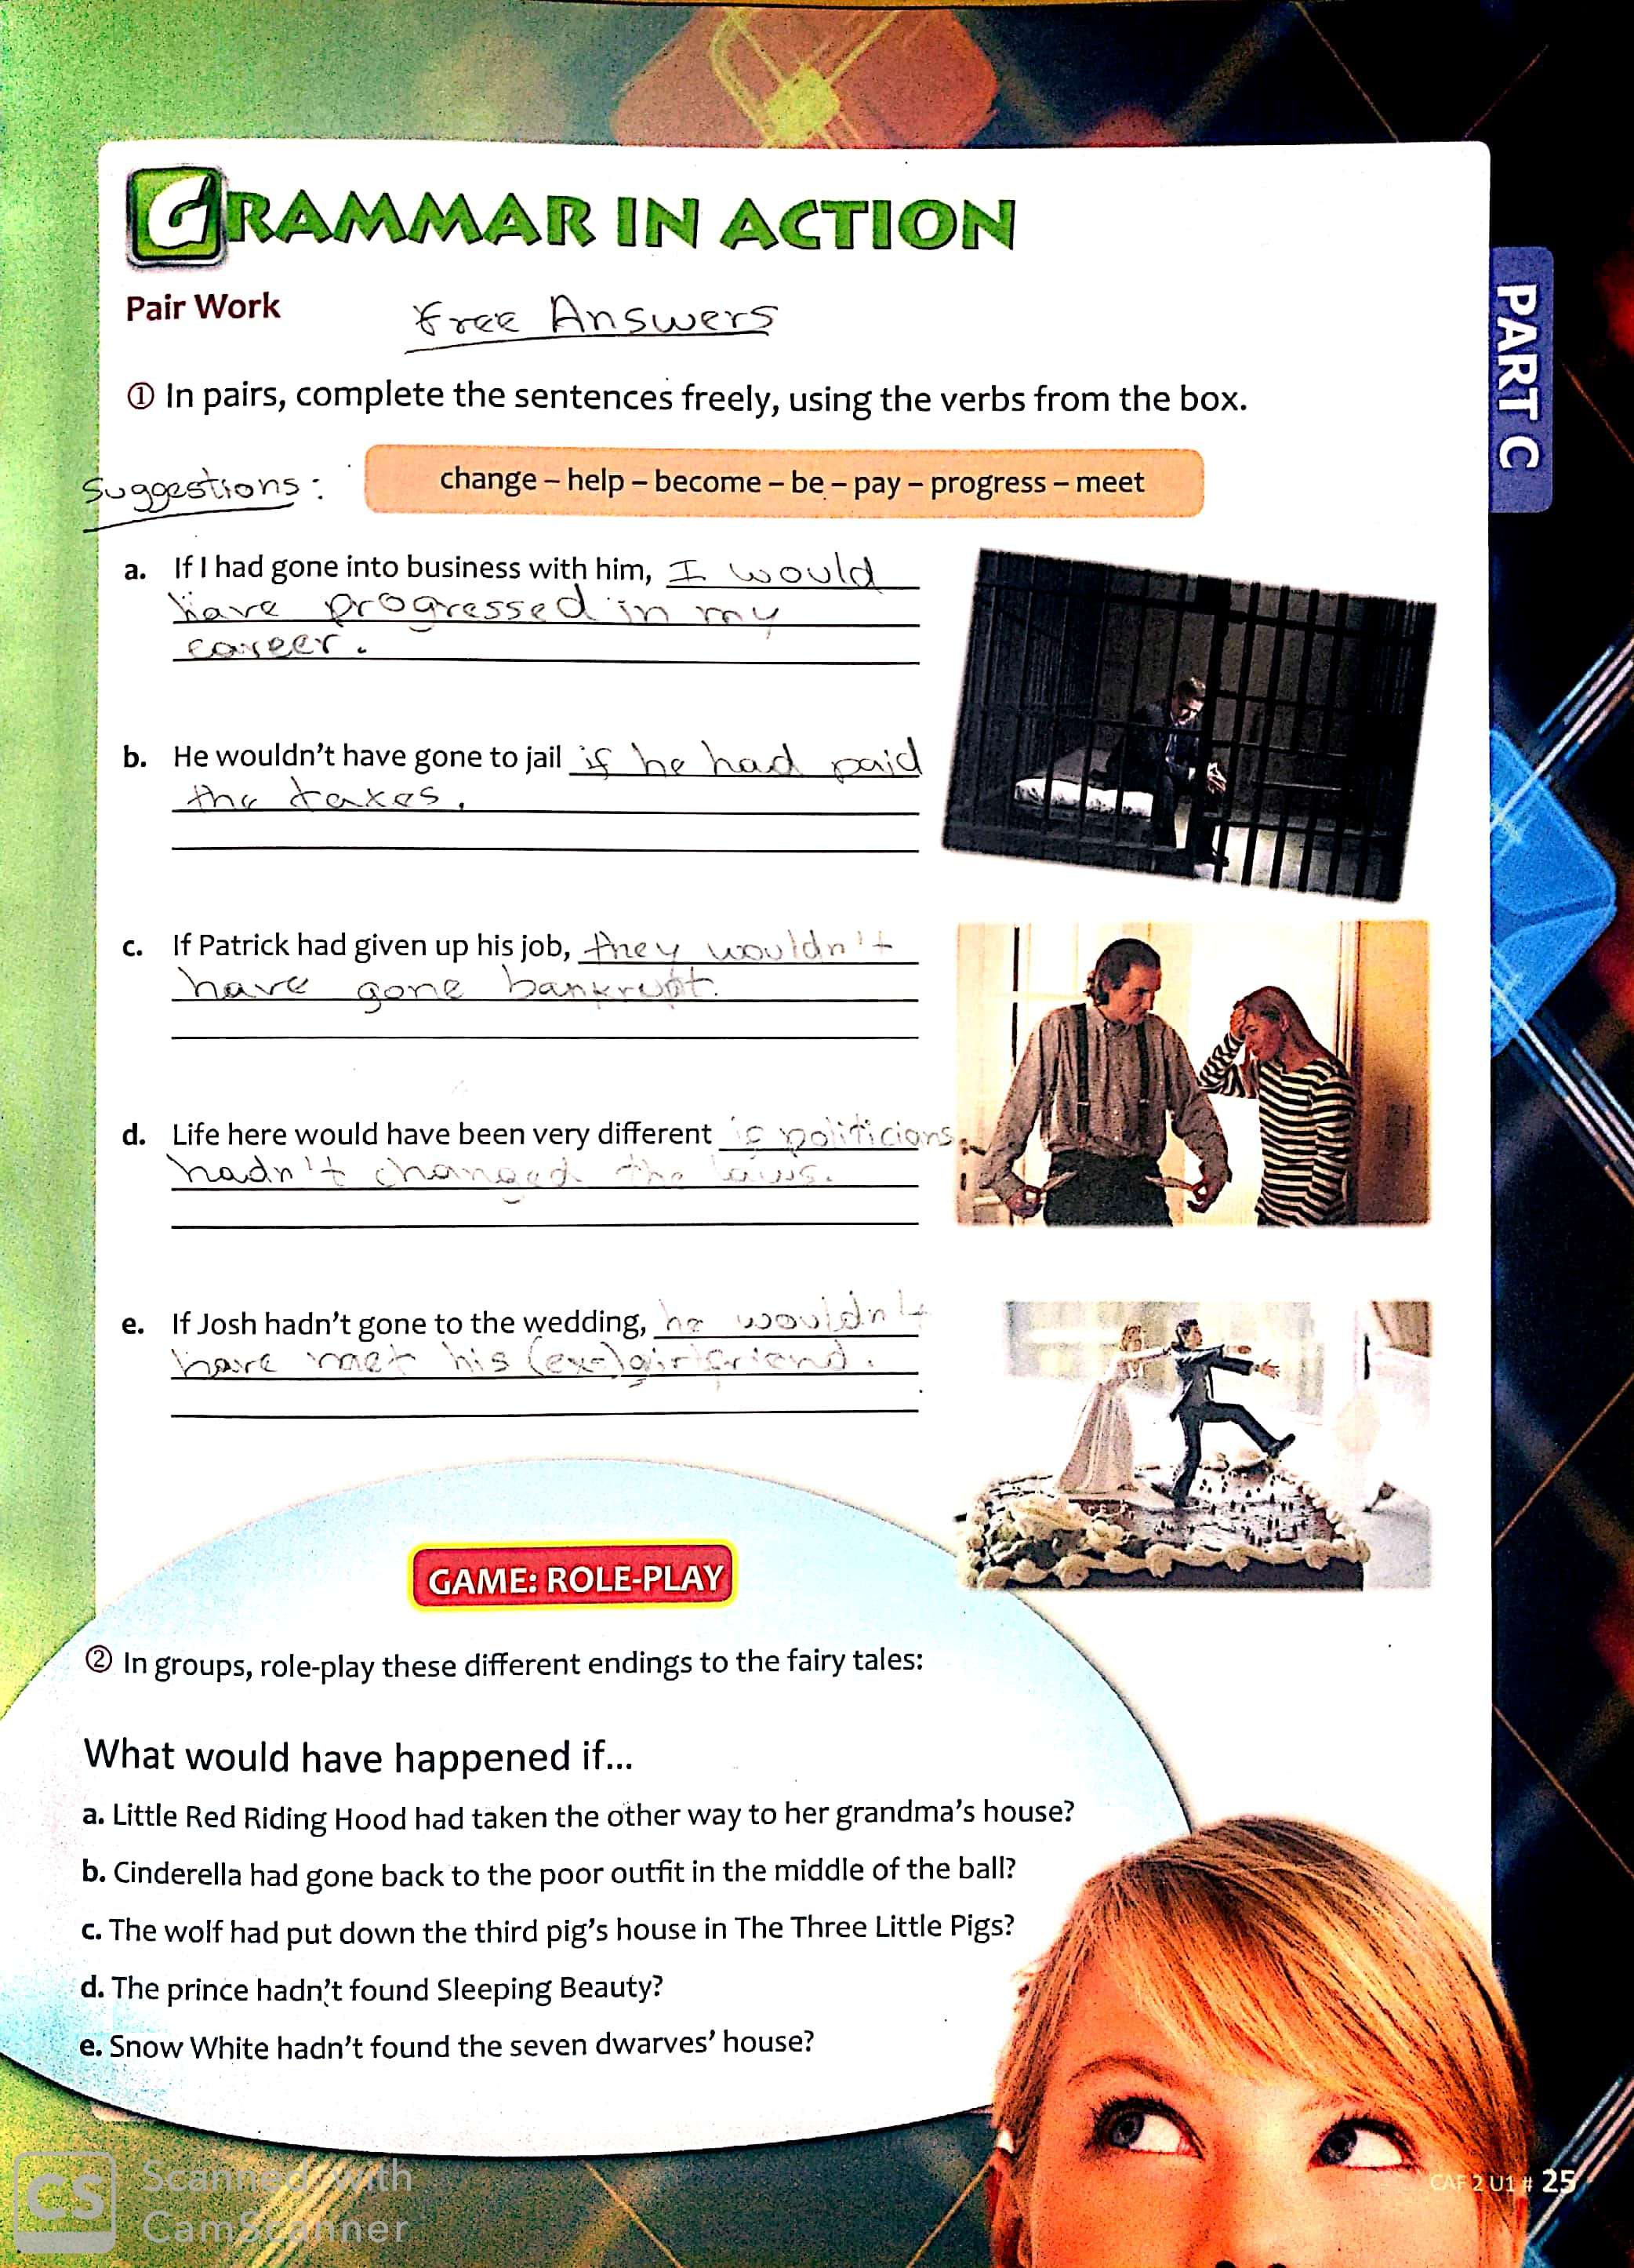 GRAMMAR IN ACTION
PART C
Pair Work
Free Answers
① In pairs, complete the sentences freely, using the verbs from the box.
Suggestions:
change – help – become – be – pay – progress – meet
a. If I had gone into business with him, I would
have progressed in my
career.
b. He wouldn't have gone to jail if he had paid
the taxes.
c. If Patrick had given up his job, they wouldn't
have gone bankrupt.
d. Life here would have been very different if politicians
hadn't changed the laws.
e. If Josh hadn't gone to the wedding, he wouldn't
have met his (ex-)girlfriend.
GAME: ROLE-PLAY
② In groups, role-play these different endings to the fairy tales:
What would have happened if...
a. Little Red Riding Hood had taken the other way to her grandma's house?
b. Cinderella had gone back to the poor outfit in the middle of the ball?
c. The wolf had put down the third pig's house in The Three Little Pigs?
d. The prince hadn't found Sleeping Beauty?
e. Snow White hadn't found the seven dwarves' house?
CAF 2 U1 # 25
CS Scanned with
CamScanner